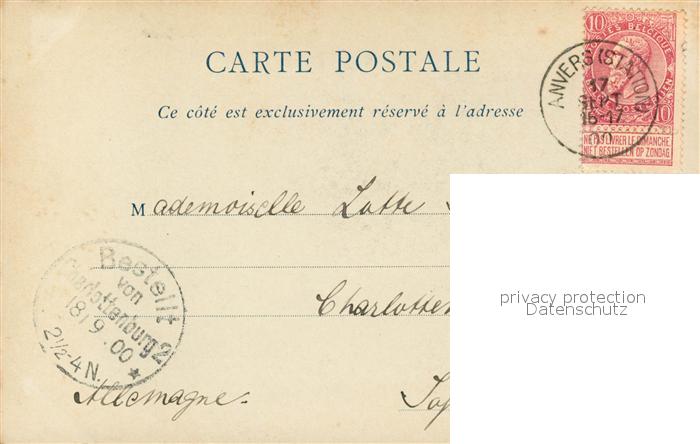 CARTE POSTALE
Ce côté est exclusivement réservé à l'adresse
10 POSTES BELGIQUE
10
NE PAS LIVRER LE DIMANCHE
NIET BESTELLEN OP ZONDAG
ANVERS (STATION)
17
SEPT
16-17
00
Mademoiselle Lotte
Charlotten
Allemagne.
Bestellt
von
Charlottenburg 2
18/9.00
2½-4N.
privacy protection
Datenschutz